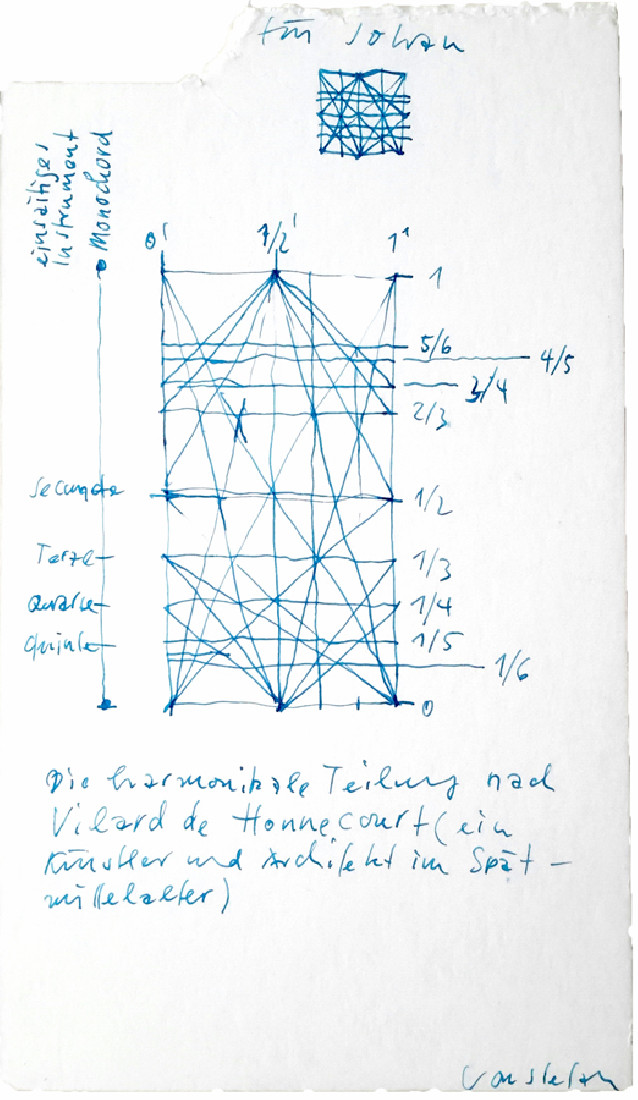 Für Johan
einsaitiges
Instrument
Monochord
0'
1/2'
1'
1
5/6
4/5
3/4
2/3
Secunde
1/2
Terze
1/3
Quarte
1/4
Quinte
1/5
1/6
0
Die harmonikale Teilung nach
Vilard de Honnecourt (ein
Künstler und Architekt im Spät-
mittelalter)
von Stefan